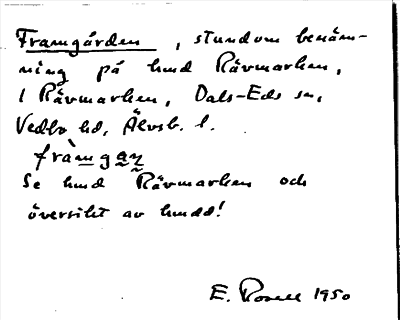 Framgården, stundom benäm-
ning på hmd Rävmarken,
1 Rävmarken, Dals-Eds sn,
Vedbo hd, Älvsb. l.
fràmgaṇ
Se hmd Rävmarken och
översikt av hmdd!
E. Rosell 1950